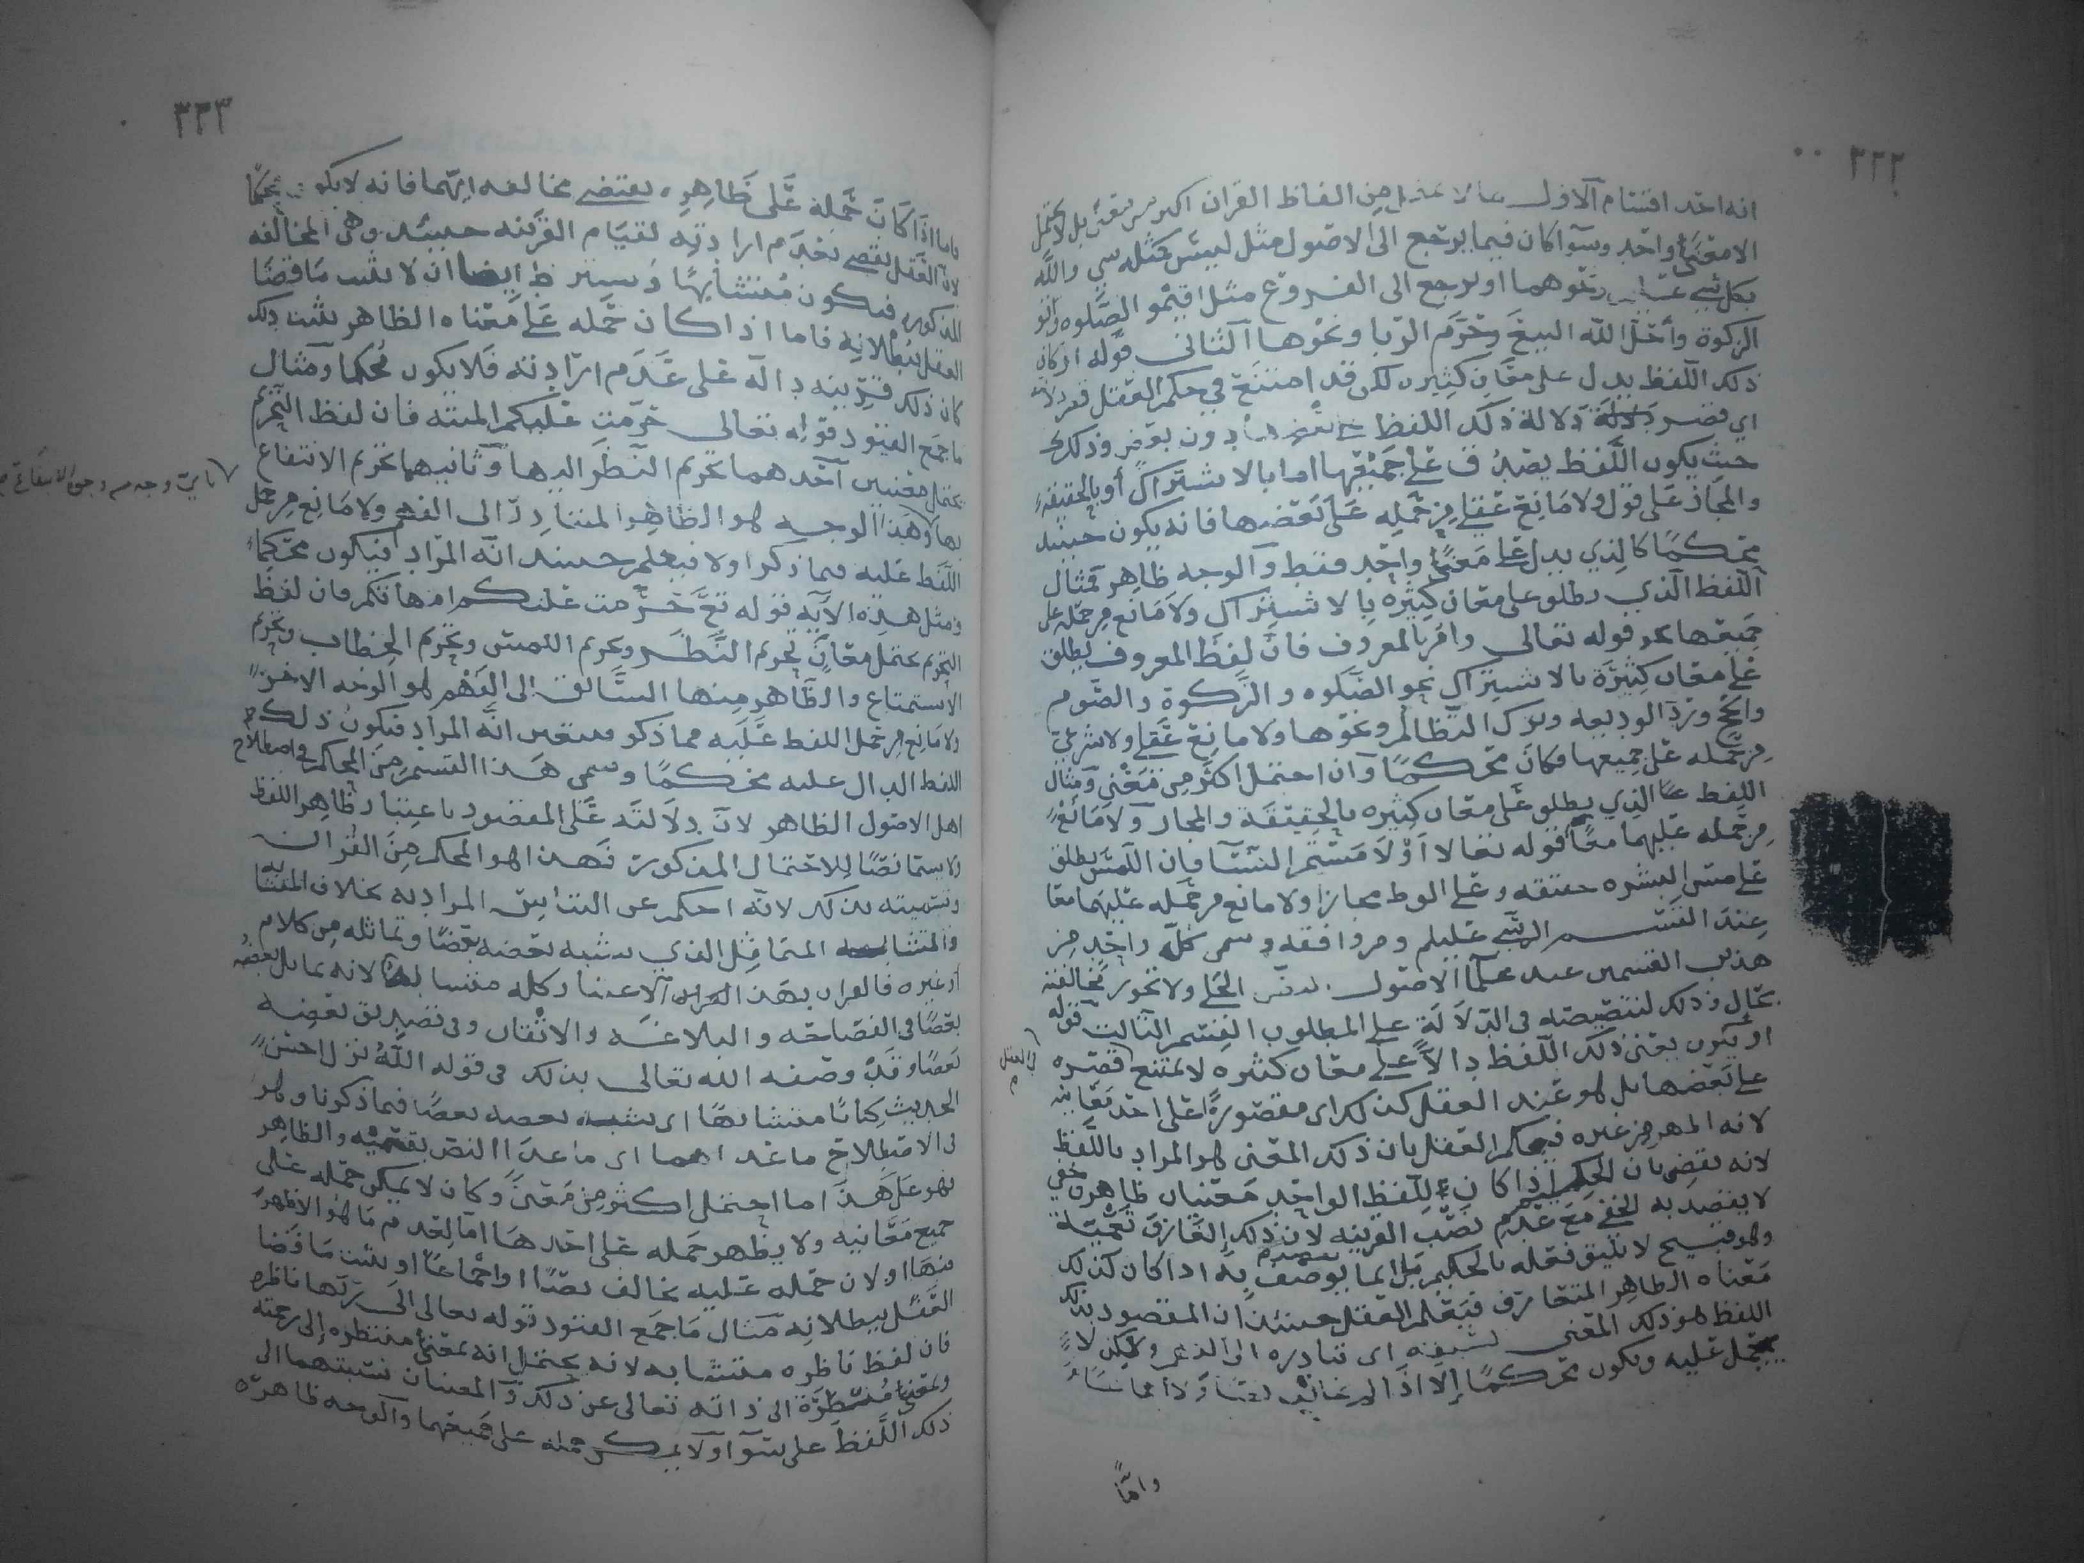 ٢٢٢
انه احد اقسام الاول من الفاظ القران اكثر من معنى بل لا يحتمل
الا معنًى واحد وسوآ كان فيما يرجع الى الاصول مثل ليس كمثله شي والله
بكل شي ونحوهما او يرجع الى الفروع مثل اقيموا الصلوه واتو
الزكوة وأحل الله البيع وحرم الربا ونحوها الثاني قوله او كان
ذلك اللفظ يدل على معانٍ كثيره لكن قد امتنع في حكم العقل قصر دلالته
اي قصر دلالة ذلك اللفظ على بعضها دون بعض وذلك
حيث يكون اللفظ يصدُق على جميعها اما بالاشتراك أو بالحقيقة
والمجاز على قول ولا مانع عقلي من حمله على بعضها فانه يكون حينئذ
محكمًا كالذي يدل على معنًى واحد فقط والوجه ظاهر فمثال
اللفظ الذي يطلق على معان كثيره بالاشتراك ولا مانع من حمله على
جميعها نحو قوله تعالى وامر بالمعروف فان لفظ المعروف يطلق
على معان كثيرة بالاشتراك نحو الصلوه والزكوة والصوم
والحج وردّ الوديعه وترك التظالم ونحوها ولا مانع عقلي ولا شرعي
من حمله على جميعها فكان محكمًا وان احتمل اكثر من معنى ومثال
اللفظ الذي يطلق على معان كثيره بالحقيقة والمجاز ولا مانع
من حمله عليهما معًا قوله تعالا اَوْ لاَمَسْتُم النسآ فان اللمس يطلق
على مس البشره حقيقه وعلى الوط مجازا ولا مانع من حمله عليهما معا
عند القسم الرسي عليلم ومن وافقه وسمى كل واحد من
هذين القسمين عند علما الاصول النص الجلي ولا تجوز مخالفته
بحال وذلك لتنصيصه في الدلالة على المطلوب القسم الثالث قوله
او يكون يعني ذلك اللفظ دالاًّ على معان كثيره لا يمتنع قصره
في العقل
على بعضها بل هو عند العقل كذلك اي مقصورًا على احد معانيه
لانه اظهر من غيره فيحكم العقل بان ذلك المعنى هو المراد باللفظ
لانه يقضي بان الحكيم اذا كان للفظ الواحد معنيان ظاهر وخفي
لا يقصد به الخفي مع عدم نصب القرينه لان ذلك الغاز وتعمية
وهو قبيح لا يليق فعله بالحكيم بل انما يوصف به اذا كان كذلك
معناه الظاهر المتعارف فيعلم العقل حينئذ ان المقصود بذلك
اللفظ هو ذلك المعنى لسبقه اي تبادره الى الذهن ولكن لا
يحمل عليه ويكون محكمًا إلا اذا لم يخالف
واما
٢٢٣
فاما اذا كان حمله على ظاهره يقتضي مخالفه ايهما فانه لا يكون محكمًا
لان العقل يقضي بعدم ارادته لقيام القرينه حينئذ وهي المخالفه
المذكوره فيكون متشابهًا ويشترط ايضا ان لا يثبت ما قضا
العقل ببطلانه فاما اذا كان حمله على معناه الظاهر يثبت ذلك
كان ذلك قرينه دالة على عدم ارادته فلا يكون محكما ومثال
ما جمع القيود قوله تعالى حرمت عليكم الميته فان لفظ التحريم
يحتمل معنيين احدهما تحريم النظر اليها وثانيهما تحريم الانتفاع
بها وهذا الوجه هو الظاهر المتبادر الى الفهم ولا مانع من حمل
اللفظ عليه فيما ذكر اولا فيعلم حينئذ انه المراد فيكون محكمًا
ومثل هذه الآية قوله تع حرّمت عليكم امهاتكم فان لفظ
التحريم يحتمل معانٍ تحريم النظر وتحريم اللمس وتحريم الخطاب وتحريم
الاستمتاع والظاهر منها السابق الى الفهم هو الوجه الاخر
ولا مانع من حمل اللفظ عليه مما ذكر فيتعين انه المراد فيكون ذلك
اللفظ الدال عليه محكمًا وسمى هذا القسم من المحكم في اصطلاح
اهل الاصول الظاهر لان دلالته على المقصود باعتبار ظاهر اللفظ
ولا سيما نصًا للاحتمال المذكور فهذا هو المحكم من القران
وتسميته بذلك لانه احكم عن التباس المراد به بخلاف المتشابه
والمتشابه المتماثل الذي يشبه بعضه بعضًا وتماثله من كلام
او غيره فالقران بهذا الاعتبار كله متشابهًا لانه يماثل بعضه
بعضًا في الفصاحه والبلاغه والاتقان وفي تصديق بعضه
بعضًا وقد وصفه الله تعالى بذلك في قوله اللهُ نزل احسن
الحديث كتابًا متشابهًا اي يشبه بعضه بعضًا فيما ذكرنا وهو
في الاصطلاح ما عداهما اي ما عدا النص بقسميه والظاهر
فهو على هذا ما احتمل اكثر من معنىً وكان لا يمكن حمله على
جميع معانيه ولا يظهر حمله على احدها اما لعدم ما هو الاظهر
منها او لان حمله عليه يخالف نصًا او اجماعًا او يثبت ما قضا
العقل ببطلانه مثال ما جمع القيود قوله تعالى الى ربها ناظره
فان لفظ ناظره متشابه لانه يحتمل انه بمعنى منتظره الى رحمته
وبمعنى مُنتظرة الى ذاته تعالى عن ذلك والمعنيان نسبتهما الى
ذلك اللفظ على سوآ ولا يمكن حمله على جميعهما والوجه ظاهره